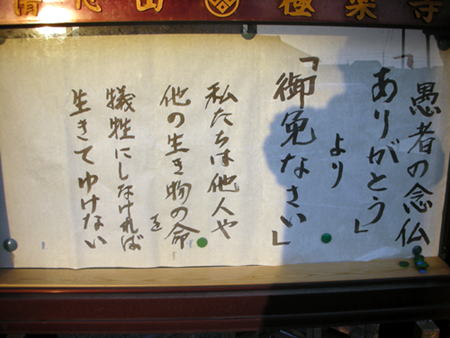 山 極楽寺
「愚者の念仏
ありがとう」
より
「御免なさい」
私たちは他人や
他の生き物の命を
犠牲にしなければ
生きてゆけない